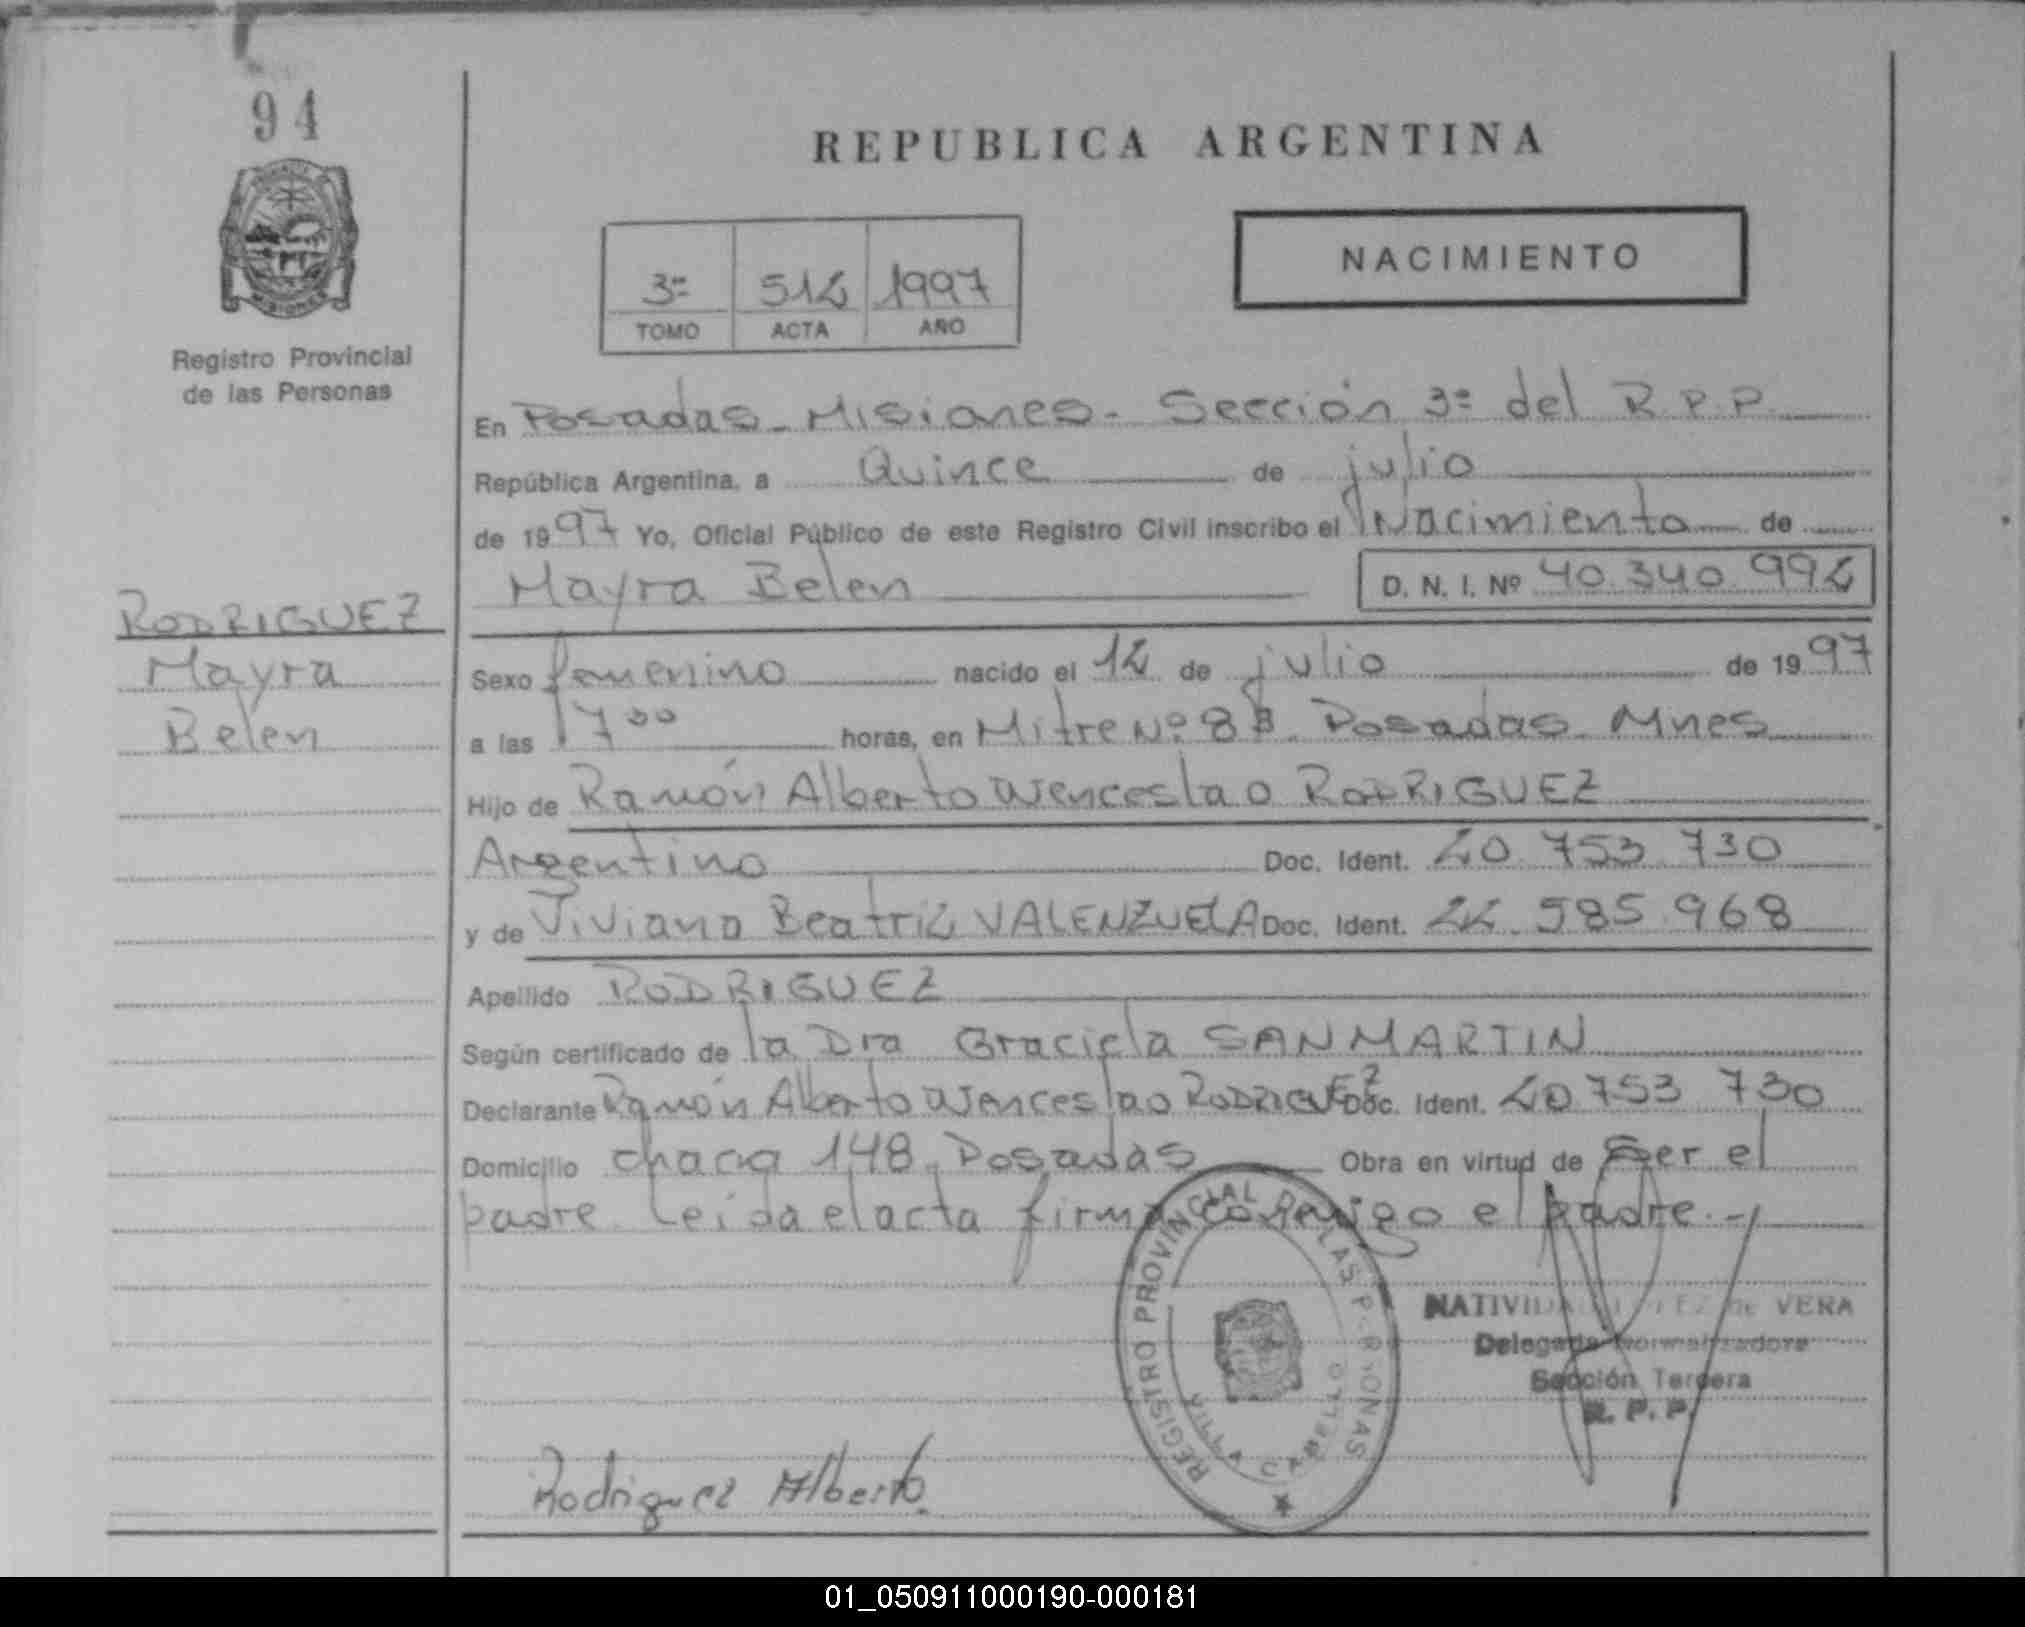 94
REPUBLICA ARGENTINA
NACIMIENTO
3º 512 1997
TOMO ACTA AÑO
Registro Provincial
de las Personas
En Posadas - Misiones - Sección 3º del R.P.P.
República Argentina, a Quince de julio
de 1997 Yo, Oficial Público de este Registro Civil inscribo el Nacimiento de
Mayra Belen D. N. I. Nº 40.340.992
RODRIGUEZ
Mayra
Belen
Sexo femenino nacido el 12 de julio de 1997
a las 17 00 horas, en Mitre Nº Posadas - Mnes
Hijo de Ramón Alberto Wenceslao RODRIGUEZ
Argentino Doc. Ident. 20.753.730
y de Viviana Beatriz VALENZUELA Doc. Ident. 22.585.968
Apellido RODRIGUEZ
Según certificado de la Dra Graciela SANMARTIN
Declarante Ramón Alberto Wenceslao RODRIGUEZ Doc. Ident. 20 753 730
Domicilio chacra 148 - Posadas Obra en virtud de Ser el
padre. Leida el acta firma conmigo el padre.-
REGISTRO PROVINCIAL DE LAS PERSONAS
VILLA CABELLO
NATIVIDAD de VERA
Delegada Normalizadora
Sección Tercera
R. P. P.
Rodriguez Alberto
01_050911000190-000181